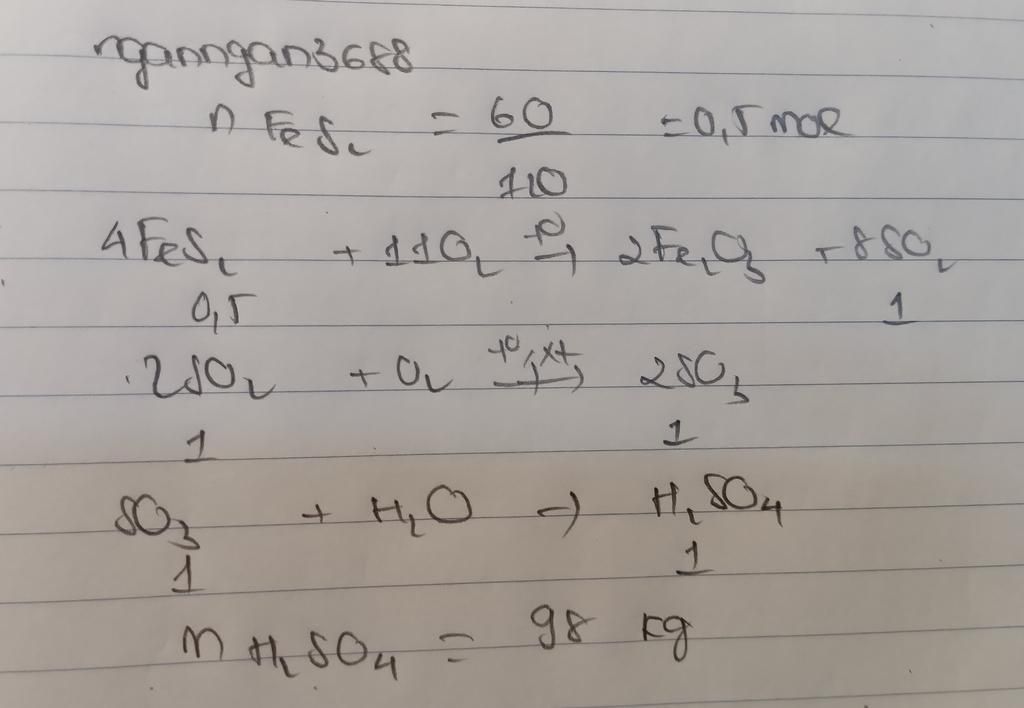 nganngan3688
n FeS₂ = 60/120 = 0,5 mol
4FeS₂ + 11O₂ t⁰→ 2Fe₂O₃ + 8SO₂
0,5 1
2SO₂ + O₂ t⁰,xt→ 2SO₃
1 1
SO₃ + H₂O → H₂SO₄
1 1
m H₂SO₄ = 98 kg